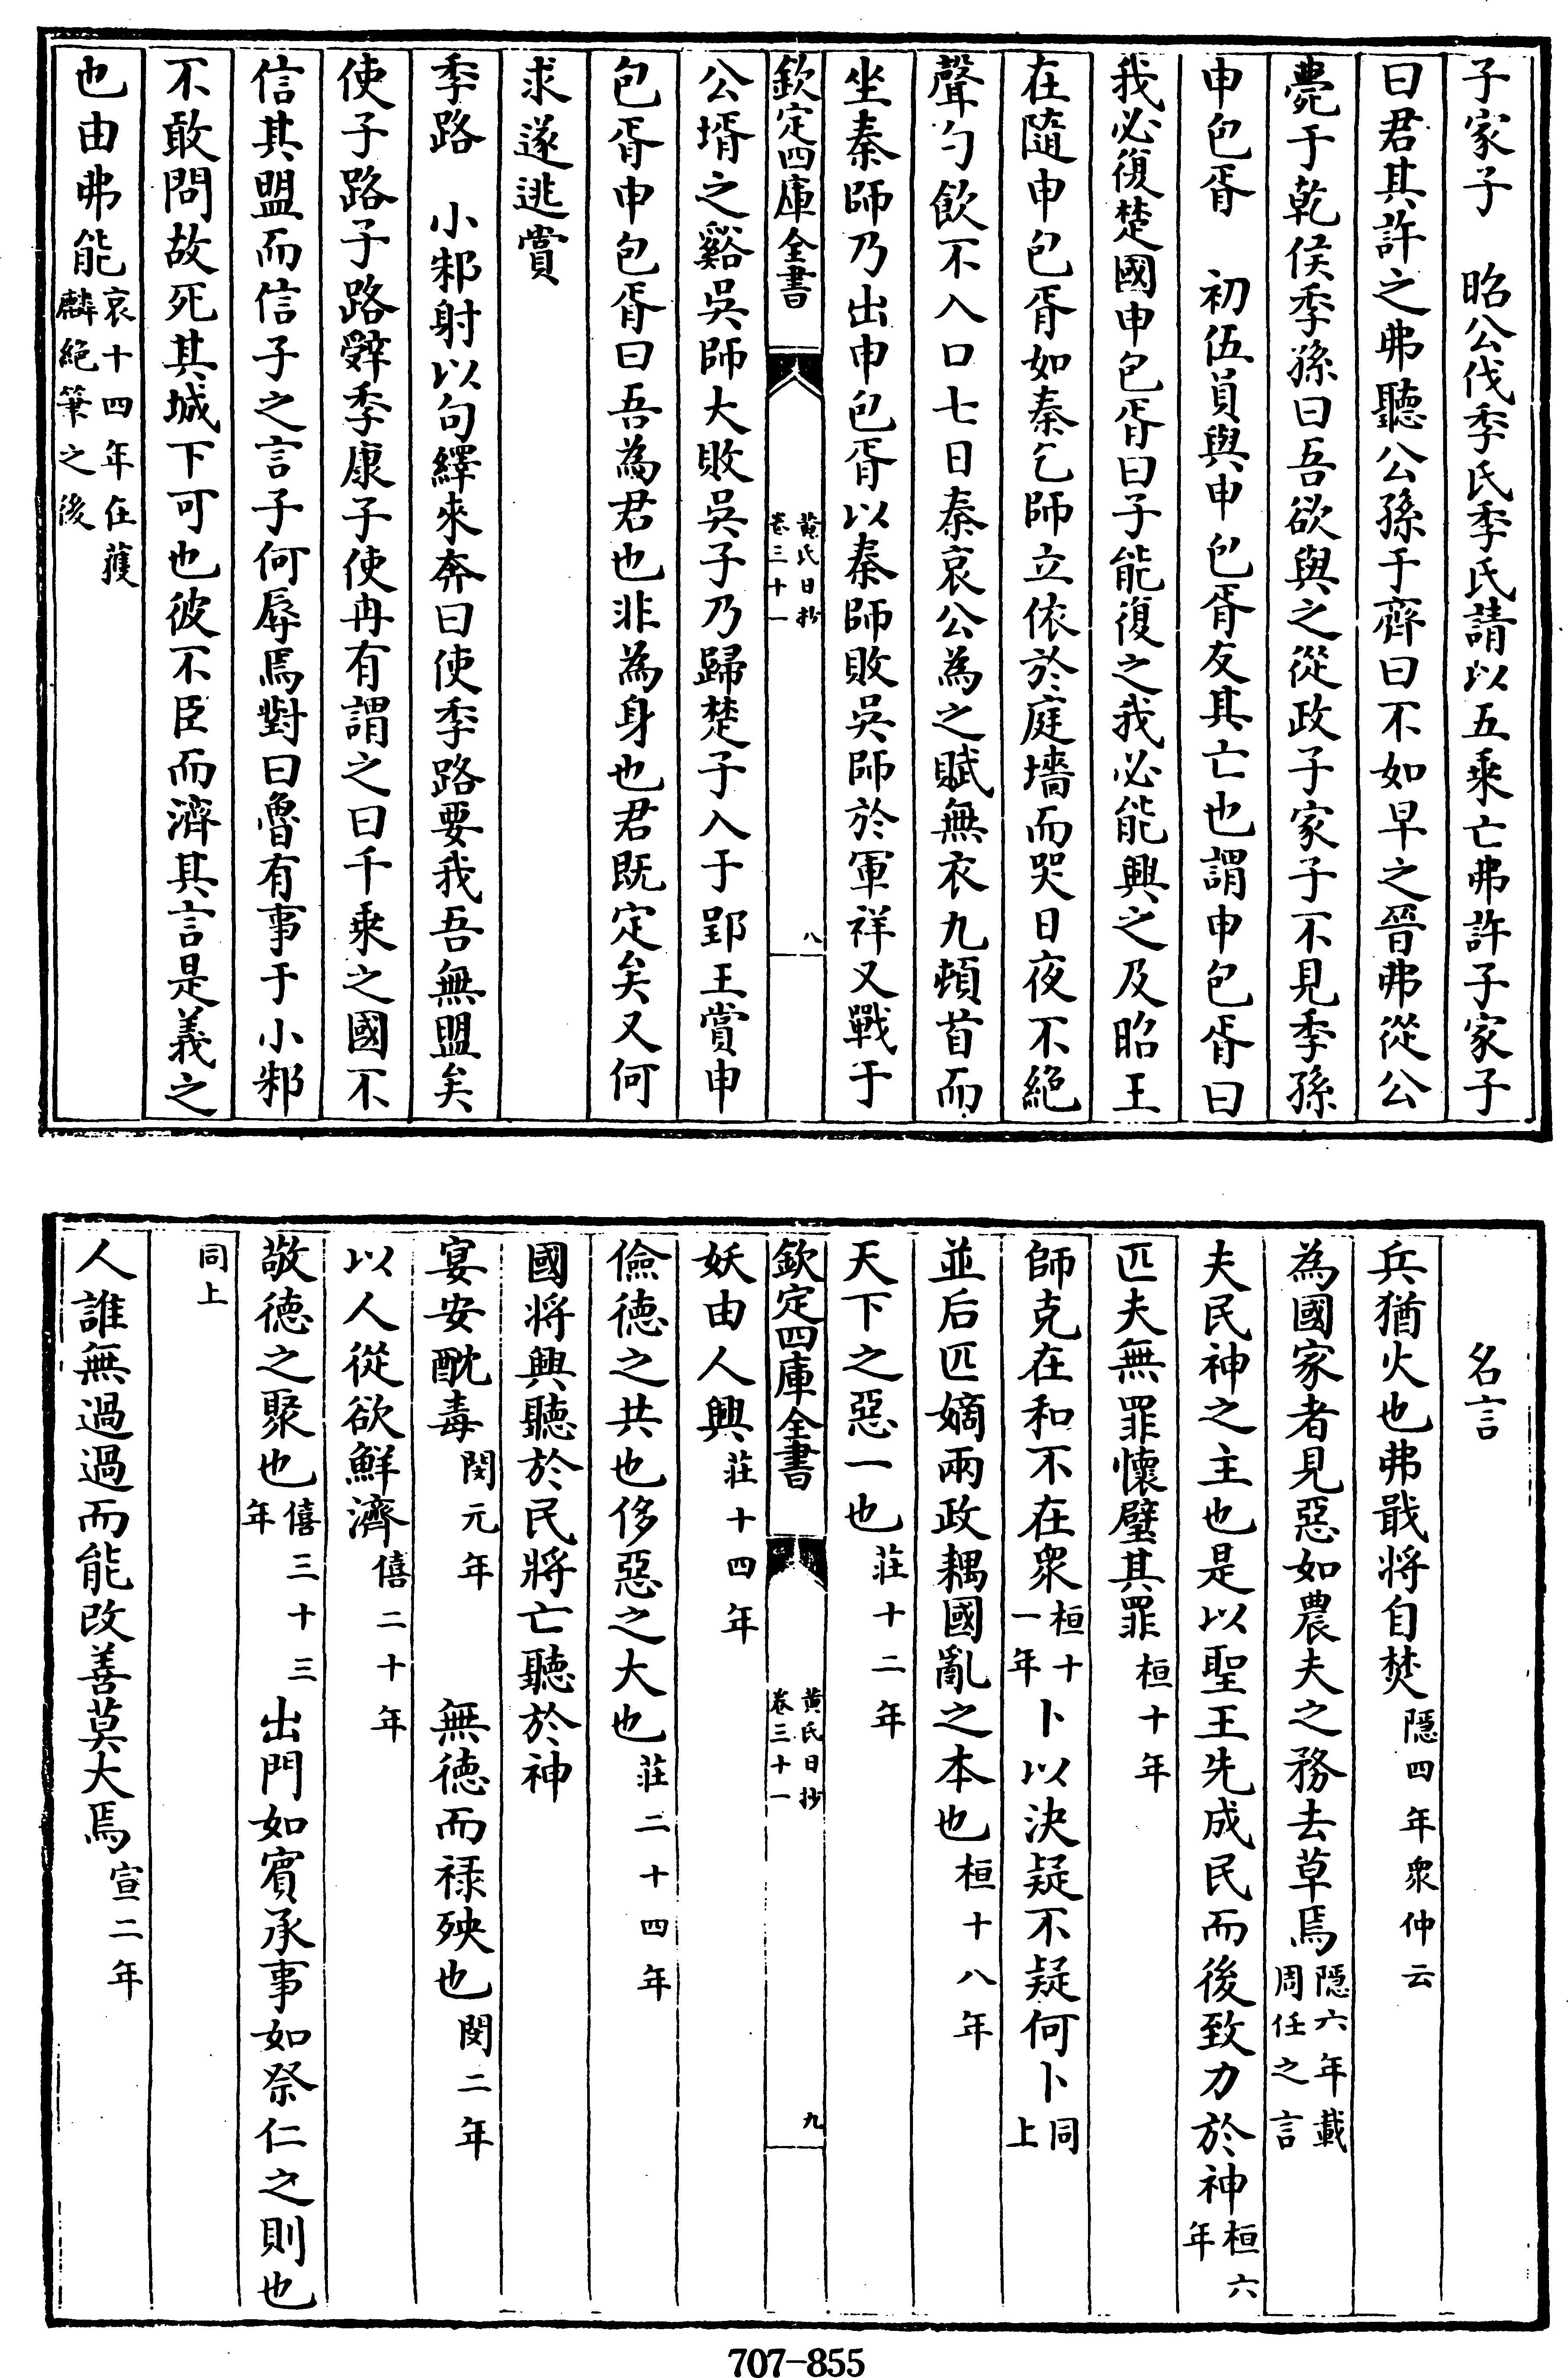 子家子　昭公伐季氏季氏請以五乘亡弗許子家子
曰君其許之弗聽公孫于齊曰不如早之晉弗從公
薨于乾侯季孫曰吾欲與之從政子家子不見季孫
申包胥　初伍員與申包胥友其亡也謂申包胥曰
我必復楚國申包胥曰子能復之我必能興之及昭王
在隨申包胥如秦乞師立依於庭墻而哭日夜不絕
聲勺飲不入口七日秦哀公為之賦無衣九頓首而
坐秦師乃出申包胥以秦師敗吳師於軍祥又戰于
欽定四庫全書　黃氏日抄卷三十一　八
公壻之谿吳師大敗吳子乃歸楚子入于郢王賞申
包胥申包胥曰吾為君也非為身也君既定矣又何
求遂逃賞
季路　小邾射以句繹來奔曰使季路要我吾無盟矣
使子路子路辭季康子使冉有謂之曰千乘之國不
信其盟而信子之言子何辱焉對曰魯有事于小邾
不敢問故死其城下可也彼不臣而濟其言是義之
也由弗能哀十四年在獲麟絕筆之後
名言
兵猶火也弗戢將自焚隱四年衆仲云
為國家者見惡如農夫之務去草焉隱六年載周任之言
夫民神之主也是以聖王先成民而後致力於神桓六年
匹夫無罪懷璧其罪桓十年
師克在和不在衆桓十一年卜以決疑不疑何卜同上
並后匹嫡兩政耦國亂之本也桓十八年
天下之惡一也莊十二年
欽定四庫全書　黃氏日抄卷三十一　九
妖由人興莊十四年
儉德之共也侈惡之大也莊二十四年
國將興聽於民將亡聽於神
宴安酖毒閔元年　無德而祿殃也閔二年
以人從欲鮮濟僖二十年
敬德之聚也僖三十三年出門如賓承事如祭仁之則也
同上
人誰無過過而能改善莫大焉宣二年
707-855